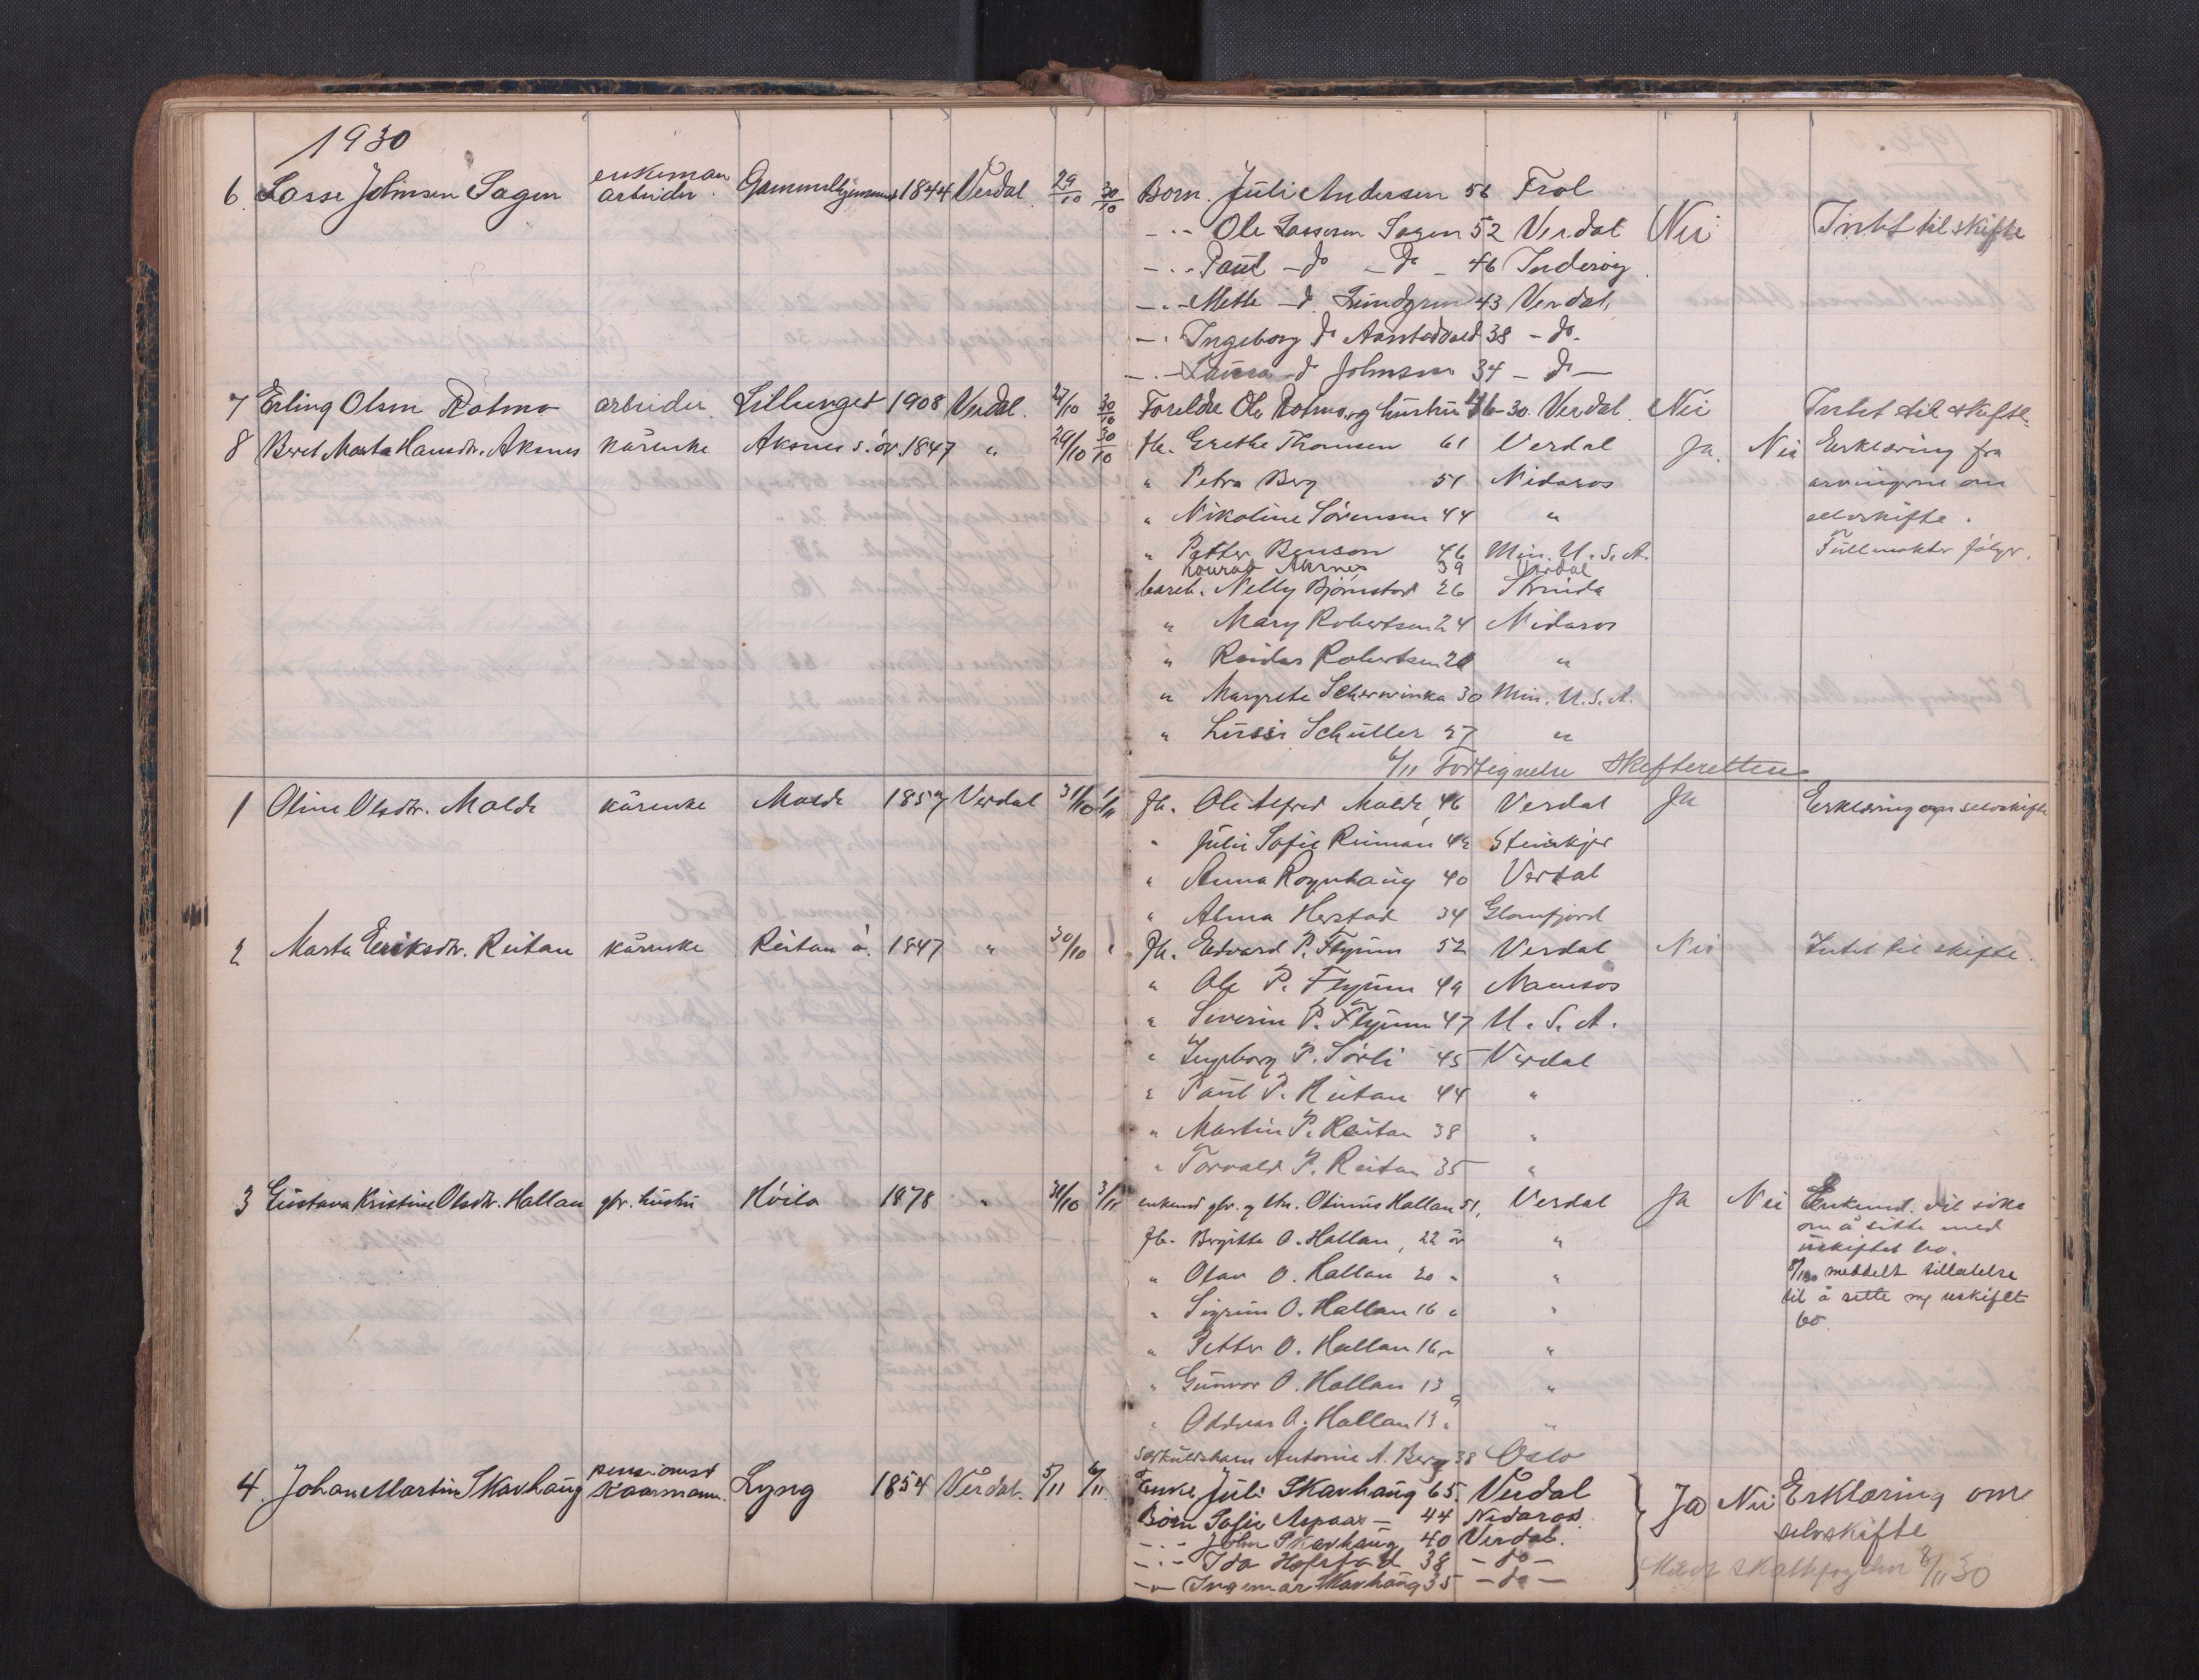 1930
6. Lasse Johnsen Sagen enkeman arbeider. 1844 Verdal. 29/10 30/10 Born. Juli Andersen 56 Frol
-.- Ole Lassesen Sagen 52 Verdal Nei Intet til skifte
-.- Paul -do -do- 46 Inderøy
-.- Mette -d. Lundgren 43 Verdal.
-.- Ingeborg do 38 -do.
-.- Laura -d Johnsen 34 -do-
7 Erling Olsen Rotmo arbeider. Lillunget 1908 Verdal. 27/10 30/10 Foreldre Ole Rotmo og hustru 46-30. Verdal. Nei Intet til skifte.
8 Beret Marta Hansdtr. Aksnes kårenke Aksnes s. ør. 1847 " 29/10 30/10 fh. Grethe Thomsen 61 Verdal Ja. Nei Erklæring fra
" Petra Berg 51 Nidaros arvingerne om
" Nikoline Sörensen 44 " selvskifte.
" Petter Benson 46 Min. U.S.A. Fullmakter følger.
Konrad Aksnes 39 Verdal
barnb. Nelly Björnstad 26 Strinda
" Mary Robertsen 24 Nidaros
" Reidar Robertsen 20 "
" Margrete Scherwinka 30 Min. U.S.A.
" Lussi Schuller 27 "
6/11 Fortegnelse Skifteretten
1 Oline Olsdtr. Molde kårenke Molde 1857 Verdal 31/10 1/11 fh. Ole Alfred Molde, 46 Verdal Ja Erklæring om selvskifte
" Julie Sofie Reiman 42 Steinkjer
" Anna Rognhaug 40 Verdal
" Alma Herstad 34 Glomfjord
2 Marta Eriksdtr. Reitan kårenke Reitan ö. 1847 " 30/10 " fh. Edvard P. Flyum 52 Verdal Nei Intet til skifte.
" Ole P. Flyum 49 Namsos
" Severin P. Flyum 47 U.S.A.
" Ingeborg P. Sörli 45 Verdal
" Paul P. Reitan 44 "
" Martin P. Reitan 38 "
" Torvald P. Reitan 35 "
3 Gustava Kristine Olsdtr. Hallan gbr. hustru Höila 1878 " 31/10 3/11 enkemd gbr. Otinius Hallan 51, Verdal Ja Nei Enkemd. vil söke
fb. Birgitte O. Hallan, 22 år " om å sitte med
uskiftet bo.
" Olav O. Hallan 20 " " meddelt tillatelse
" Sigrun O. Hallan 16 " " til å sitte i uskiftet
" Petter O. Hallan 16 " " bo.
" Gunvor O. Hallan 13 " "
" Oddvar O. Hallan 13 " "
særkulsbarn Antonie A. Berg 38 Oslo
4. Johan Martin Skavhaug pensionist kaarmann. Lyng 1854 Verdal. 5/11 6/11. Enke. Juli Skavhaug 65. Verdal Ja Nei Erklæring om
Börn Sofie Aspaas - 44 Nidaros. selvskifte
-.- John Skavhaug 40 Verdal.
-.- Ida Hofstad 38 -do-
-.- Ingemar Skavhaug 35 -do- 8/11 30